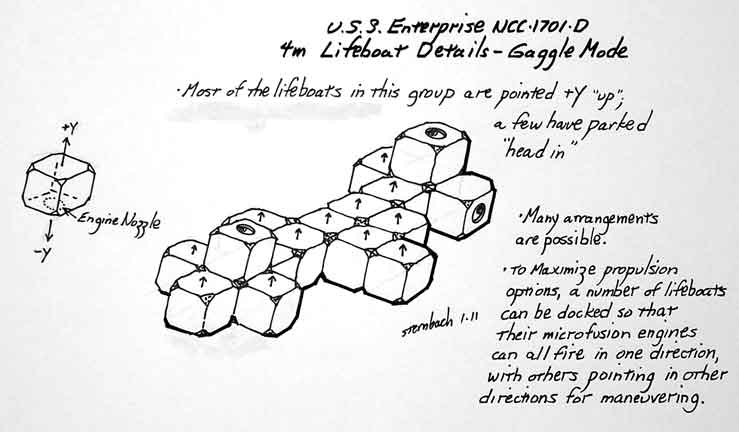 U.S.S. Enterprise NCC-1701-D
4m Lifeboat Details - Gaggle Mode
· Most of the lifeboats in this group are pointed +Y "up";
a few have parked
"head in"
+Y
Engine Nozzle
-Y
· Many arrangements
are possible.
· To Maximize propulsion
options, a number of lifeboats
can be docked so that
their microfusion engines
can all fire in one direction,
with others pointing in other
directions for maneuvering.
Sternbach 1.11